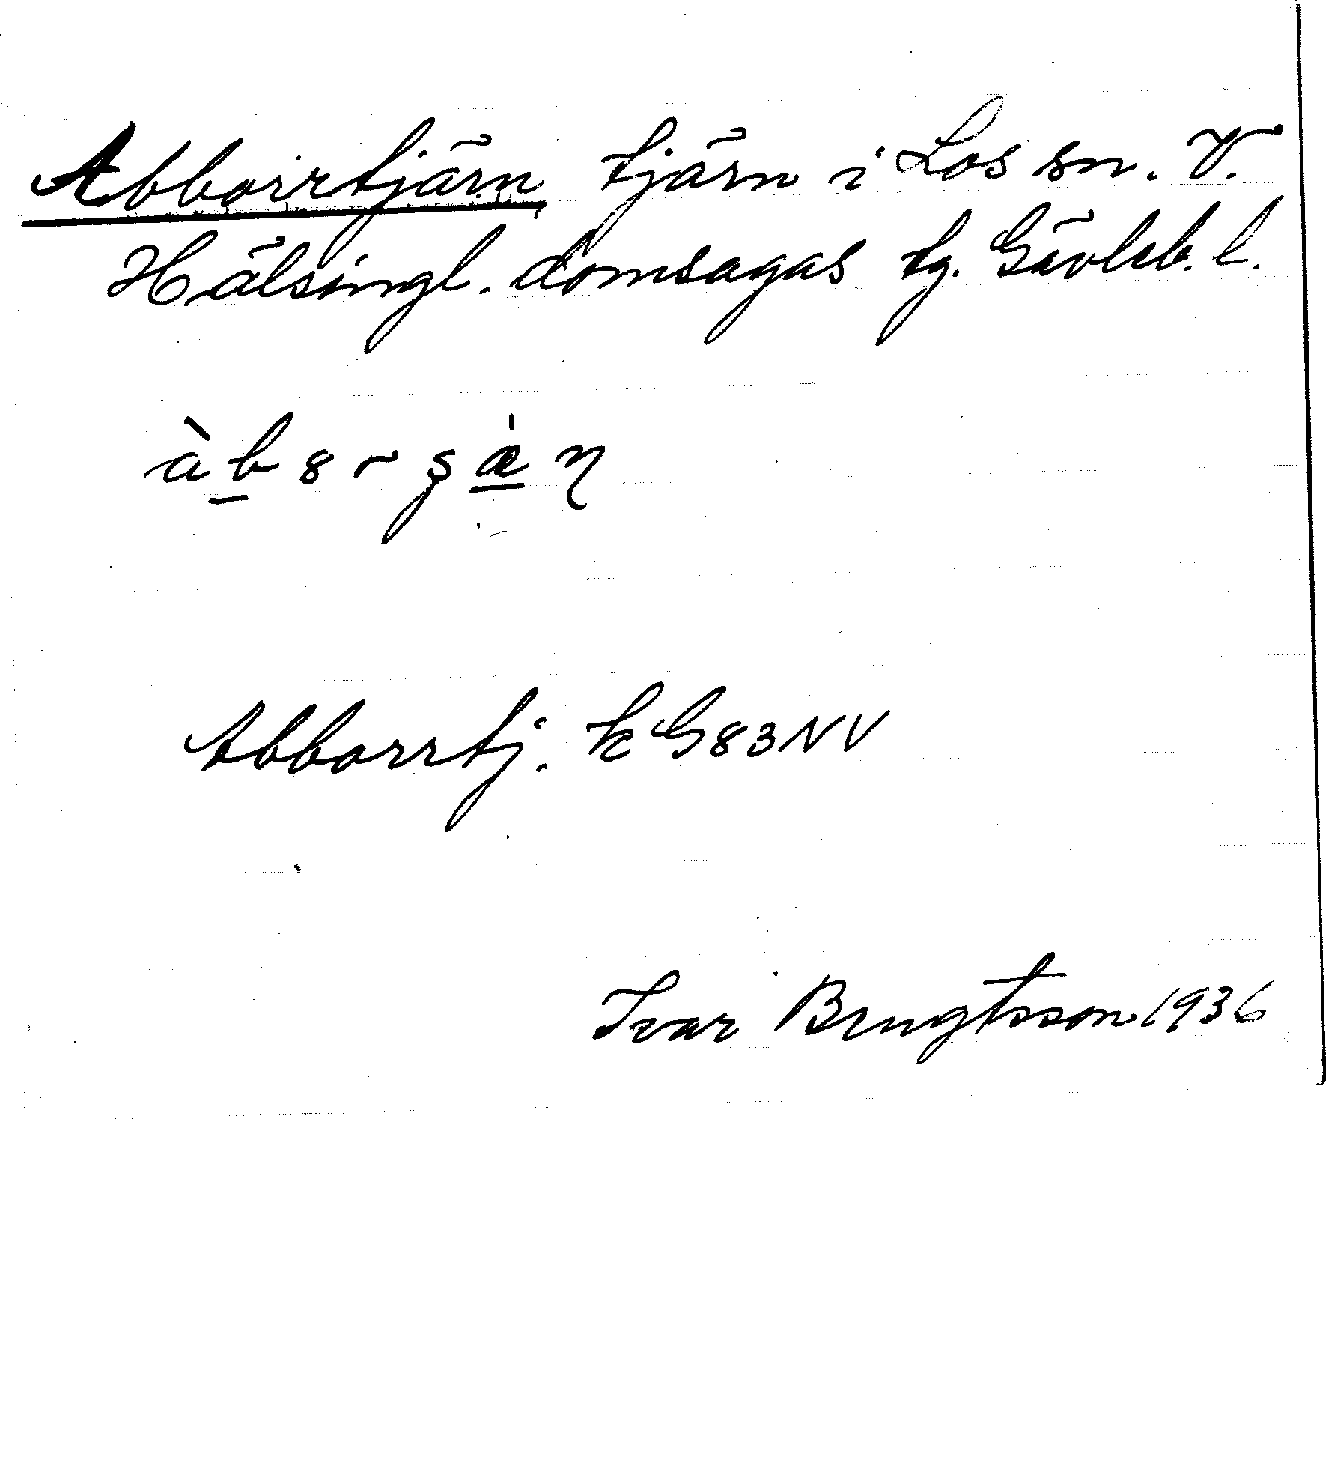 Abborrtjärn tjärn i Los sn. V.
Hälsingl. domsagas tg. Gävleb. l.
Abborrtj. k G83NV
Ivar Bengtsson 1936